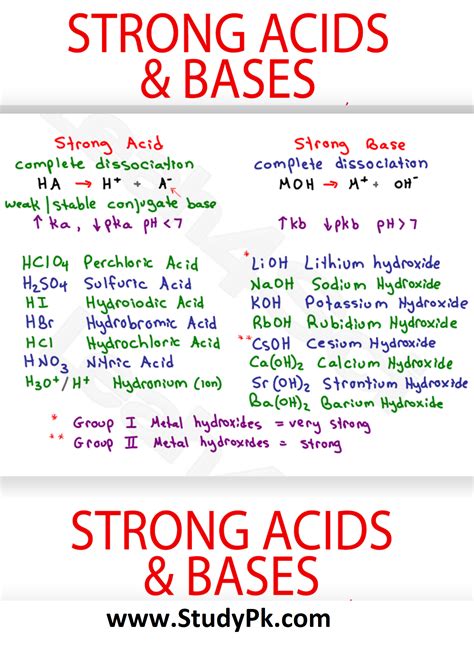 STRONG ACIDS
& BASES
Strong Acid
complete dissociation
HA → H⁺ + A⁻
weak/stable conjugate base
↑ka, ↓pka pH<7
HClO₄ Perchloric Acid
H₂SO₄ Sulfuric Acid
HI Hydroiodic Acid
HBr Hydrobromic Acid
HCl Hydrochloric Acid
HNO₃ Nitric Acid
H₃O⁺/H⁺ Hydronium (ion)
Strong Base
complete dissociation
MOH → M⁺ + OH⁻
↑kb ↓pkb pH>7
*LiOH Lithium hydroxide
NaOH Sodium Hydroxide
KOH Potassium Hydroxide
RbOH Rubidium Hydroxide
**CsOH Cesium Hydroxide
Ca(OH)₂ Calcium Hydroxide
Sr(OH)₂ Strontium Hydroxide
Ba(OH)₂ Barium Hydroxide
* Group I Metal hydroxides = very strong
** Group II Metal hydroxides = strong
STRONG ACIDS
& BASES
www.StudyPk.com